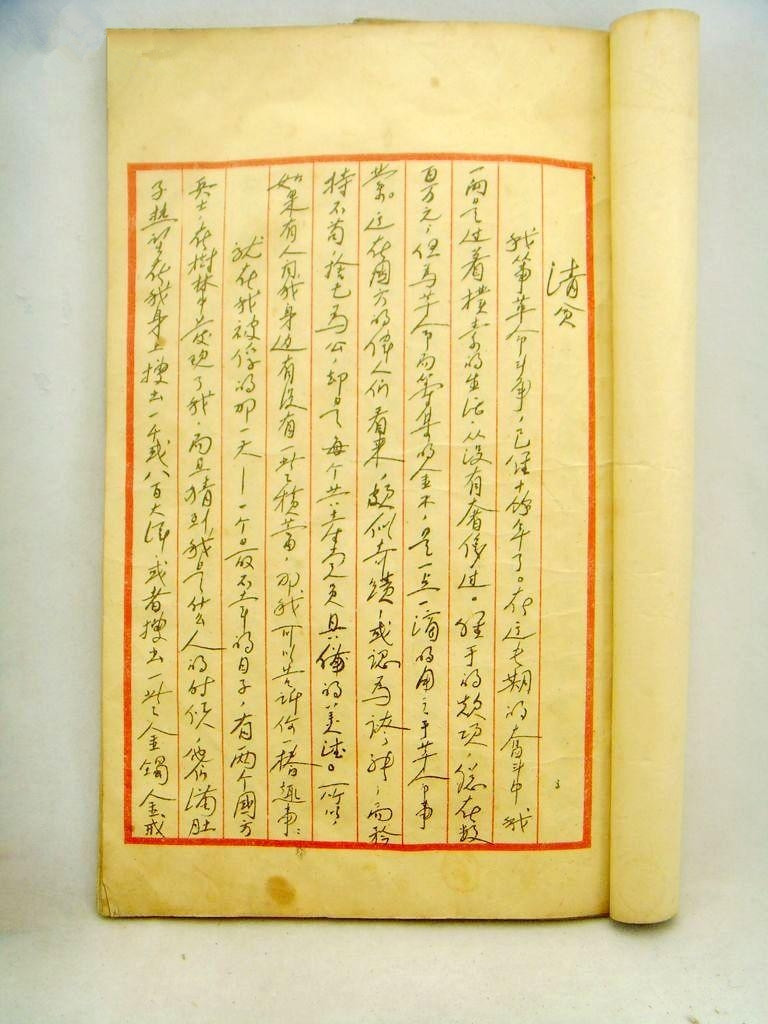 清贫
我从事革命斗争，已经十馀年了。在这长期的奋斗中，我
一向是过着樸素的生活，从没有奢侈过。经手的款项，总在数
百万元，但为革命而筹集的金钱，是一点一滴的用之于革命事
业。这在国方的伟人们看来，颇似奇蹟，或认为誇张，而矜
持不苟，捨己为公，却是每个共产党员具备的美德。所以，
如果有人问我身边有没有一些积蓄，那我可以告诉你一桩趣事：
就在我被俘的那一天——一个最不幸的日子，有两个國方
兵士，在樹林中发现了我，而且猜到我是什么人的时候，他们满肚
子热望在我身上搜出一千或八百大洋，或者搜出一些金镯金戒